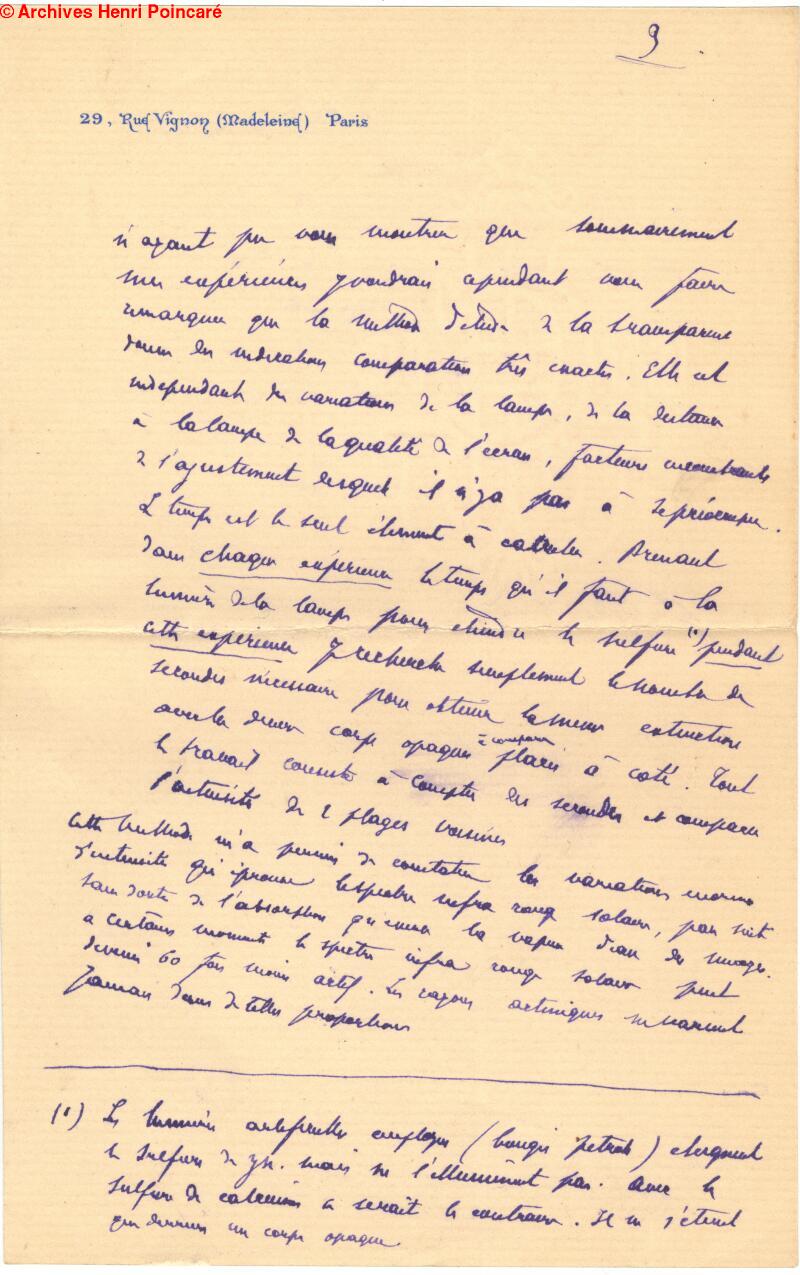 © Archives Henri Poincaré
9
29, Rue Vignon (Madeleine) Paris
n'ayant pu vous montrer que sommairement
mes expériences je voudrais cependant vous faire
remarquer que la methode d'etude de la transparence
donne des indications comparatives très exactes. Elle est
independante des variations de la lampe, de la distance
à la lampe de la qualité de l'écran, facteurs encombrants
de l'ajustement desquels il n'y a pas à se préoccuper.
Le temps est le seul élement à calculer. Prenant
dans chaque expérience le temps qu'il faut à la
lumière de la lampe pour éteindre le sulfure (1) pendant
cette expérience je recherche simplement le nombre de
secondes nécessaire pour obtenir la meme extinction
avec les divers corps opaques à comparer placés à coté. Tout
le travail consiste à compter les secondes et comparer
l'intensité de 2 plages voisines
Cette methode m'a permis de constater les variations enormes
d'intensité qu'éprouve le spectre infra rouge solaire, par suite
sans doute de l'absorption qu'exerce la vapeur d'eau des nuages.
a certains moments le spectre infra rouge solaire peut
devenir 60 fois moins actif. Les rayons actiniques ne varient
jamais dans de telles proportions
(1) Les lumières artificielles employées (bougie petrole) eteignent
le sulfure de zn. mais ne l'illuminent pas. Avec le
sulfure de calcium ce serait le contraire. Il ne s'éteint
que derriere un corps opaque.